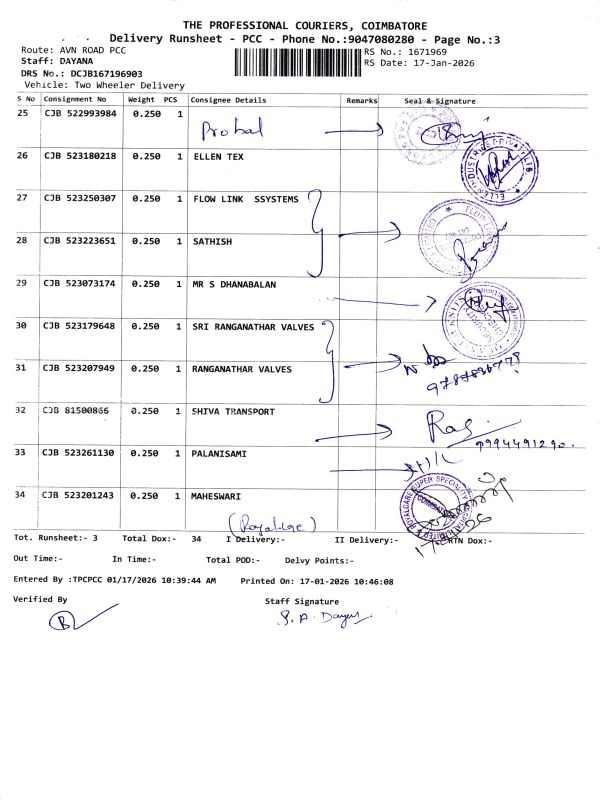 THE PROFESSIONAL COURIERS, COIMBATORE
Delivery Runsheet - PCC - Phone No.:9047080280 - Page No.:3
Route: AVN ROAD PCC
RS No.: 1671969
Staff: DAYANA
RS Date: 17-Jan-2026
DRS No.: DCJB167196903
Vehicle: Two Wheeler Delivery
S No Consignment No Weight PCS Consignee Details Remarks Seal & Signature
25 CJB 522993984 0.250 1
26 CJB 523180218 0.250 1 ELLEN TEX
27 CJB 523250307 0.250 1 FLOW LINK SSYSTEMS
28 CJB 523223651 0.250 1 SATHISH
29 CJB 523073174 0.250 1 MR S DHANABALAN
30 CJB 523179648 0.250 1 SRI RANGANATHAR VALVES
31 CJB 523207949 0.250 1 RANGANATHAR VALVES
32 CJB 81500866 0.250 1 SHIVA TRANSPORT
9994491290.
33 CJB 523261130 0.250 1 PALANISAMI
34 CJB 523201243 0.250 1 MAHESWARI
Tot. Runsheet:- 3 Total Dox:- 34 I Delivery:- II Delivery:- RTN Dox:-
Out Time:- In Time:- Total POD:- Delvy Points:-
Entered By :TPCPCC 01/17/2026 10:39:44 AM Printed On: 17-01-2026 10:46:08
Verified By Staff Signature